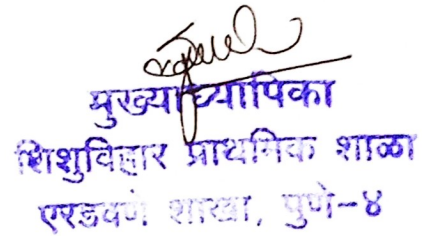 मुख्याध्यापिका
शिशुविहार प्राथमिक शाळा
एरंडवणे शाखा, पुणे-४